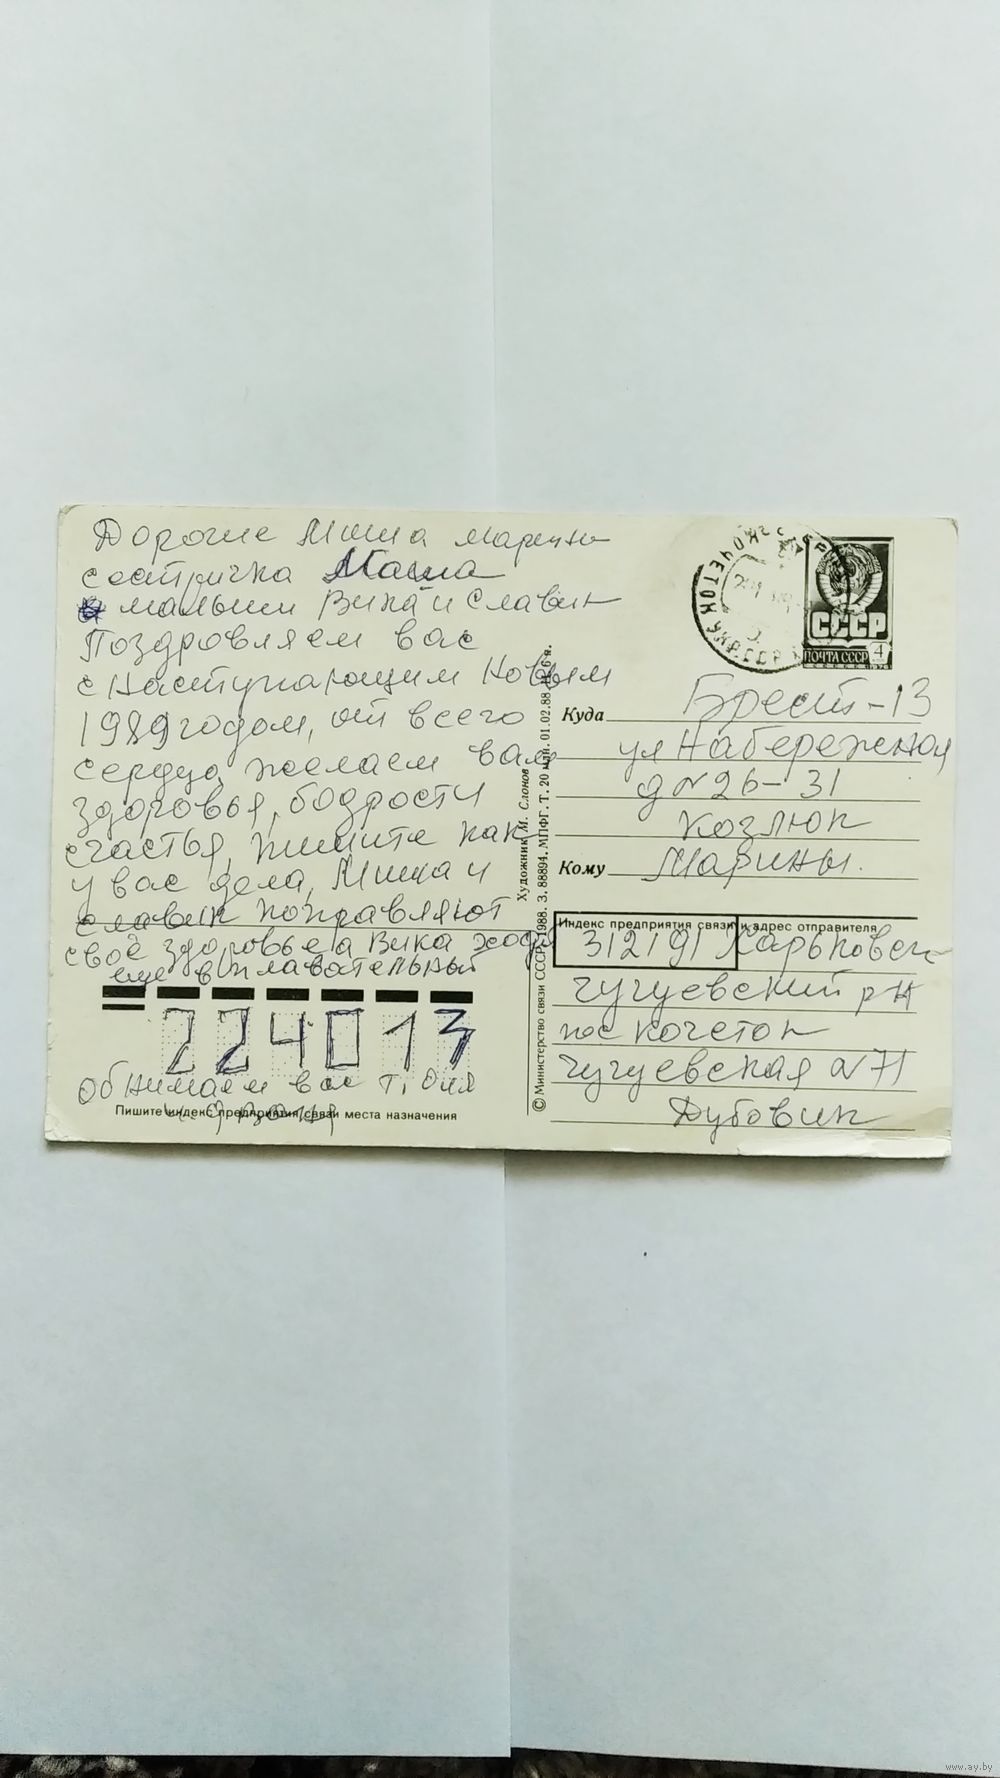 Дорогие Миша Марина
сестричка Маша
малыши Вика и Славик
Поздровляем вас
с Наступающим Новым
1989 годом, от всего
сердца желаем вам
здоровья, бодрости
счастья, пишите как
у вас дела, Мишка и
славик поправляют
своё здоровье а Вика ходит
еще в плавательный
224013
Обнимаем вас т. Оля
Пишите индекс предприятия связи места назначения
Художник М. Слонов
© Министерство связи СССР, 1988. З. 88894. МПФГ. Т. 20 млн. 01.02.88 Ц. 6 к.
КОЧЕТОК УКР.ССР
СССР
ПОЧТА СССР 4
Куда Брест-13
ул Набережная
д №26-31
Козлюк
Кому Марины.
Индекс предприятия связи и адрес отправителя
312191 Харьковск
чугуевский р Н
пос кочеток
чугуевская №71
Дубовик
www.ay.by